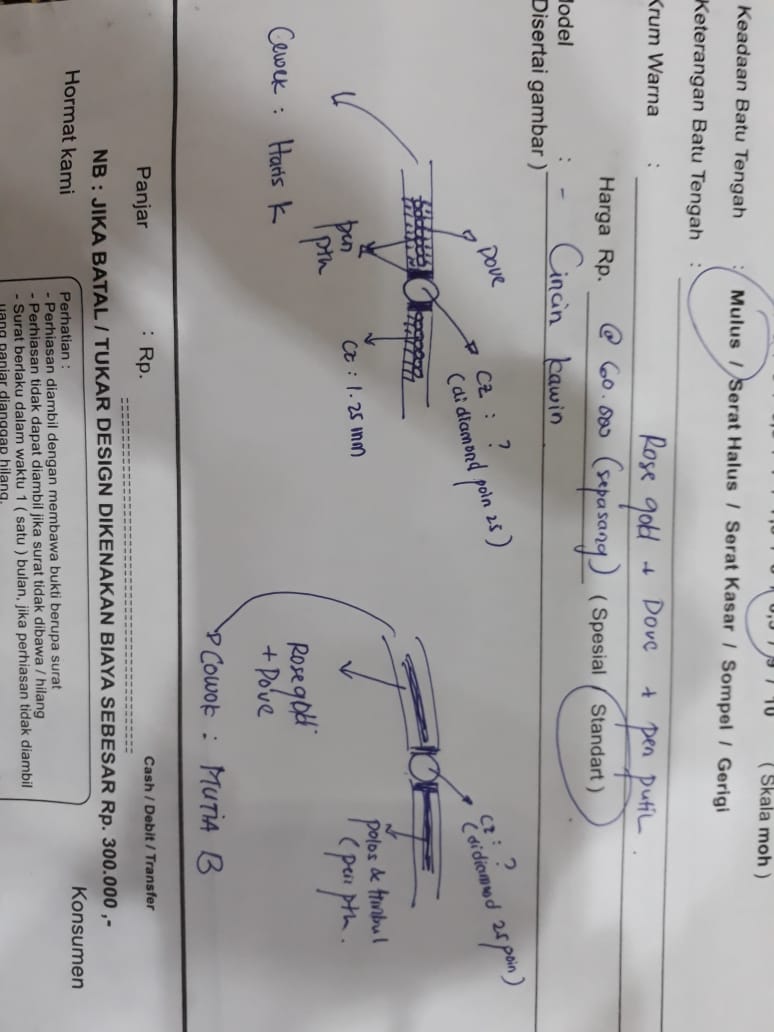 ( Skala moh )
Keadaan Batu Tengah : Mulus / Serat Halus / Serat Kasar / Sompel / Gerigi
Keterangan Batu Tengah :
Krum Warna : Rose gold + Dove + pen putih.
Harga Rp. @ 60.000 (sepasang) ( Spesial / Standart )
Model : - Cincin kawin
Disertai gambar )
CZ : ?
(di diamond poin 25)
Dove
pen
pth
CZ : 1.25 mm
Cewek : Haris K
CZ : ?
(di diamond 25 poin)
polos & timbul
(pen pth.
Rose gold
+ Dove
Cowok : MUTIA B
Panjar : Rp.
Cash / Debit / Transfer
NB : JIKA BATAL / TUKAR DESIGN DIKENAKAN BIAYA SEBESAR Rp. 300.000 ,-
Hormat kami
Konsumen
Perhatian :
- Perhiasan diambil dengan membawa bukti berupa surat
- Perhiasan tidak dapat diambil jika surat tidak dibawa / hilang
- Surat berlaku dalam waktu 1 ( satu ) bulan, jika perhiasan tidak diambil
uang panjar dianggap hilang.